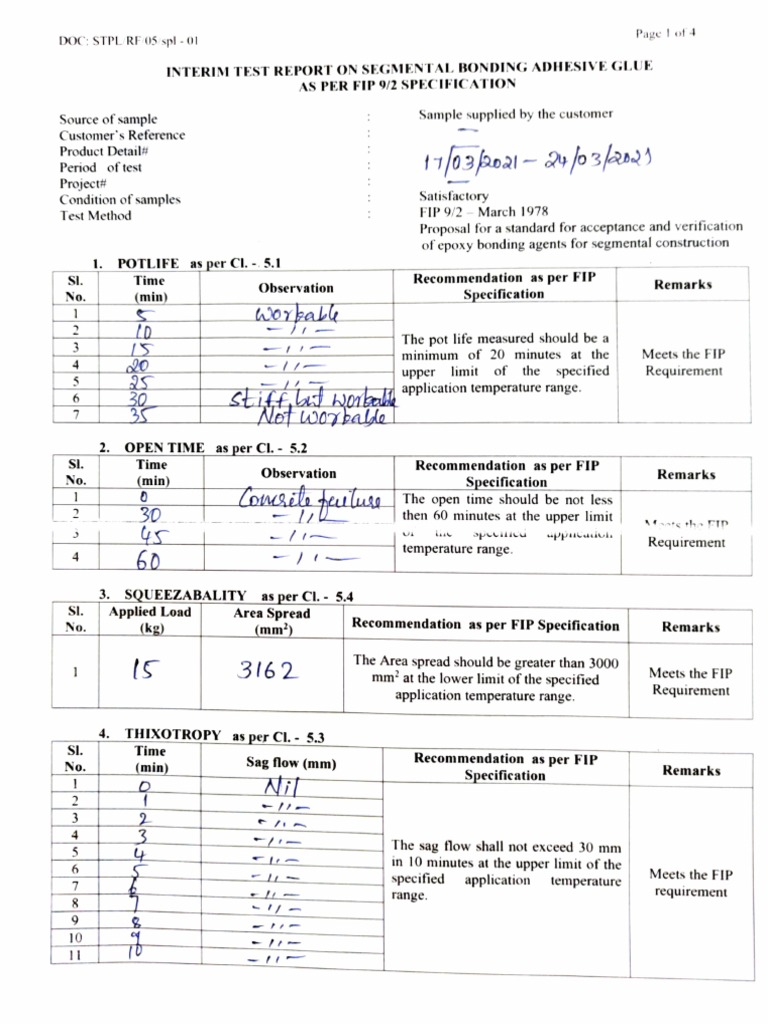 DOC: STPL/RF/05/spl - 01
Page 1 of 4
INTERIM TEST REPORT ON SEGMENTAL BONDING ADHESIVE GLUE
AS PER FIP 9/2 SPECIFICATION
Source of sample : Sample supplied by the customer
Customer's Reference : —
Product Detail# :
Period of test : 17/03/2021 – 24/03/2021
Project# : —
Condition of samples : Satisfactory
Test Method : FIP 9/2 – March 1978
Proposal for a standard for acceptance and verification
of epoxy bonding agents for segmental construction
1. POTLIFE as per Cl. - 5.1
Sl. No. Time (min) Observation Recommendation as per FIP Specification Remarks
1 5 Workable
2 10 -〃-
3 15 -〃-
4 20 -〃-
5 25 -〃-
6 30 Stiff but workable
7 35 Not workable
The pot life measured should be a
minimum of 20 minutes at the
upper limit of the specified
application temperature range.
Meets the FIP
Requirement
2. OPEN TIME as per Cl. - 5.2
Sl. No. Time (min) Observation Recommendation as per FIP Specification Remarks
1 0 Concrete failure
2 30 -〃-
3 45 -〃-
4 60 -〃-
The open time should be not less
then 60 minutes at the upper limit
of the specified application
temperature range.
Meets the FIP
Requirement
3. SQUEEZABALITY as per Cl. - 5.4
Sl. No. Applied Load (kg) Area Spread (mm²) Recommendation as per FIP Specification Remarks
1 15 3162
The Area spread should be greater than 3000
mm² at the lower limit of the specified
application temperature range.
Meets the FIP
Requirement
4. THIXOTROPY as per Cl. - 5.3
Sl. No. Time (min) Sag flow (mm) Recommendation as per FIP Specification Remarks
1 0 Nil
2 1 -〃-
3 2 -〃-
4 3 -〃-
5 4 -〃-
6 5 -〃-
7 6 -〃-
8 7 -〃-
9 8 -〃-
10 9 -〃-
11 10 -〃-
The sag flow shall not exceed 30 mm
in 10 minutes at the upper limit of the
specified application temperature
range.
Meets the FIP
requirement